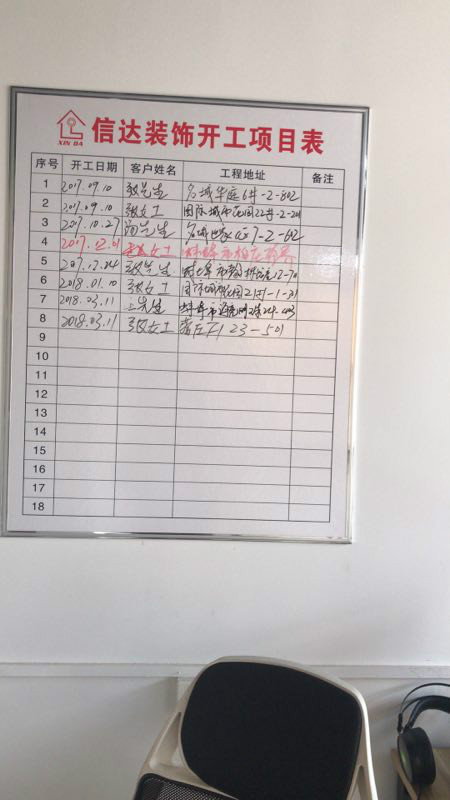 XIN DA 信达装饰开工项目表
序号 开工日期 客户姓名 工程地址 备注
1 2017.09.10 张先生 名城华庭6#-2-802
2 2017.09.10 张女士 国际城市花园22#-2-201
3 2017.10.27 先生 名城世家 7-2-602
4 2017.12.01 女士 蚌埠市
5 2017.12.24 张先生 蚌埠市
6 2018.01.10 张女士 国际城市花园21#-1-31
7 2018.03.11 王先生 蚌埠市
8 2018.03.11 张女士 23-501
9
10
11
12
13
14
15
16
17
18